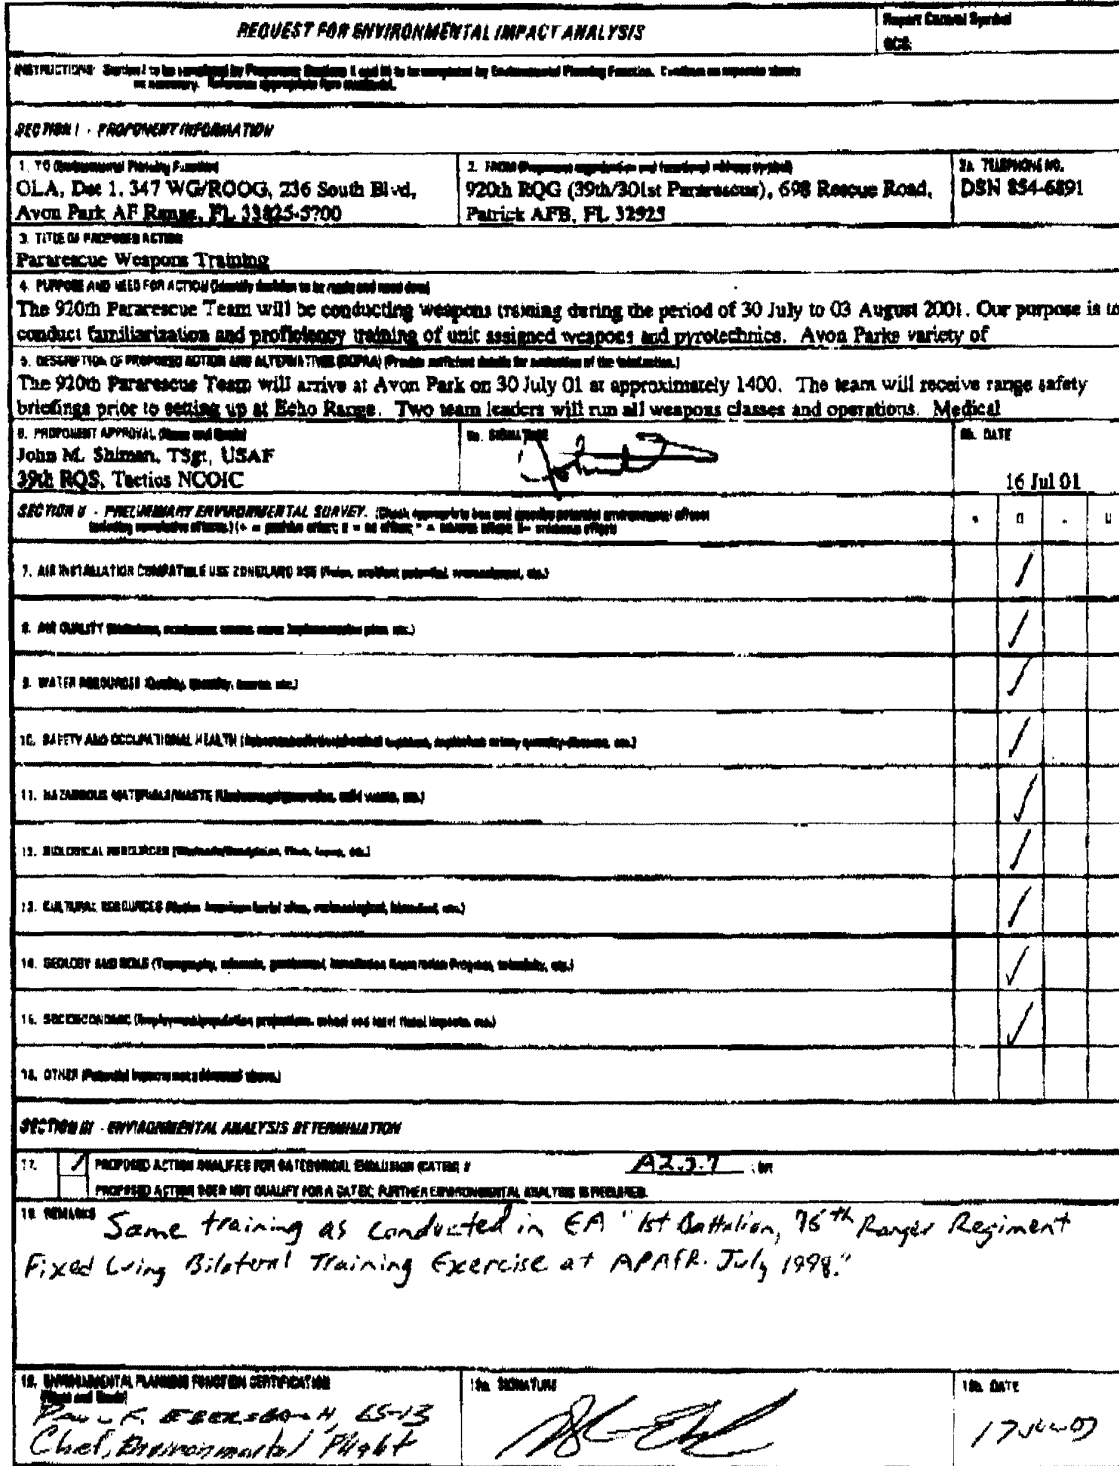 REQUEST FOR ENVIRONMENTAL IMPACT ANALYSIS
Report Control Symbol
RCS:
INSTRUCTIONS: Section I to be completed by Proponent; Sections II and III to be completed by Environmental Planning Function. Continue on separate sheets
as necessary. Reference appropriate item number(s).
SECTION I - PROPONENT INFORMATION
1. TO (Environmental Planning Function)
OLA, Det 1, 347 WG/ROOG, 236 South Blvd,
Avon Park AF Range, FL 33825-5700
2. FROM (Proponent organization and functional address symbol)
920th RQG (39th/301st Pararescue), 698 Rescue Road,
Patrick AFB, FL 32925
2a. TELEPHONE NO.
DSN 854-6891
3. TITLE OF PROPOSED ACTION
Pararescue Weapons Training
4. PURPOSE AND NEED FOR ACTION (Identify decision to be made and need date)
The 920th Pararescue Team will be conducting weapons training during the period of 30 July to 03 August 2001. Our purpose is to
conduct familiarization and proficiency training of unit assigned weapons and pyrotechnics. Avon Parks variety of
5. DESCRIPTION OF PROPOSED ACTION AND ALTERNATIVES (DOPAA) (Provide sufficient details for evaluation of the total action.)
The 920th Pararescue Team will arrive at Avon Park on 30 July 01 at approximately 1400. The team will receive range safety
briefings prior to setting up at Echo Range. Two team leaders will run all weapons classes and operations. Medical
6. PROPONENT APPROVAL (Name and Grade)
John M. Shiman, TSgt, USAF
39th RQS, Tactics NCOIC
6a. SIGNATURE
6b. DATE
16 Jul 01
SECTION II - PRELIMINARY ENVIRONMENTAL SURVEY. (Check appropriate box and describe potential environmental effects
including cumulative effects.) (+ = positive effect; 0 = no effect; - = adverse effect; U= unknown effect)
+ 0 - U
7. AIR INSTALLATION COMPATIBLE USE ZONE/LAND USE (Noise, accident potential, encroachment, etc.)
8. AIR QUALITY (Emissions, attainment status, state implementation plan, etc.)
9. WATER RESOURCES (Quality, quantity, source, etc.)
10. SAFETY AND OCCUPATIONAL HEALTH (Asbestos/radiation/chemical exposure, explosives safety quantity-distance, etc.)
11. HAZARDOUS MATERIALS/WASTE (Use/storage/generation, solid waste, etc.)
12. BIOLOGICAL RESOURCES (Wetlands/floodplains, flora, fauna, etc.)
13. CULTURAL RESOURCES (Native American burial sites, archaeological, historical, etc.)
14. GEOLOGY AND SOILS (Topography, minerals, geothermal, Installation Restoration Program, seismicity, etc.)
15. SOCIOECONOMIC (Employment/population projections, school and local fiscal impacts, etc.)
16. OTHER (Potential impacts not addressed above.)
SECTION III - ENVIRONMENTAL ANALYSIS DETERMINATION
17. PROPOSED ACTION QUALIFIES FOR CATEGORICAL EXCLUSION (CATEX) # A2.3.7 ; OR
PROPOSED ACTION DOES NOT QUALIFY FOR A CATEX; FURTHER ENVIRONMENTAL ANALYSIS IS REQUIRED.
18. REMARKS
Same training as conducted in EA "1st Battalion, 75th Ranger Regiment
Fixed Wing Bilateral Training Exercise at APAFR. July 1998."
19. ENVIRONMENTAL PLANNING FUNCTION CERTIFICATION
(Name and Grade)
Paul F. Ebersbach, GS-13
Chief, Environmental Flight
19a. SIGNATURE
19b. DATE